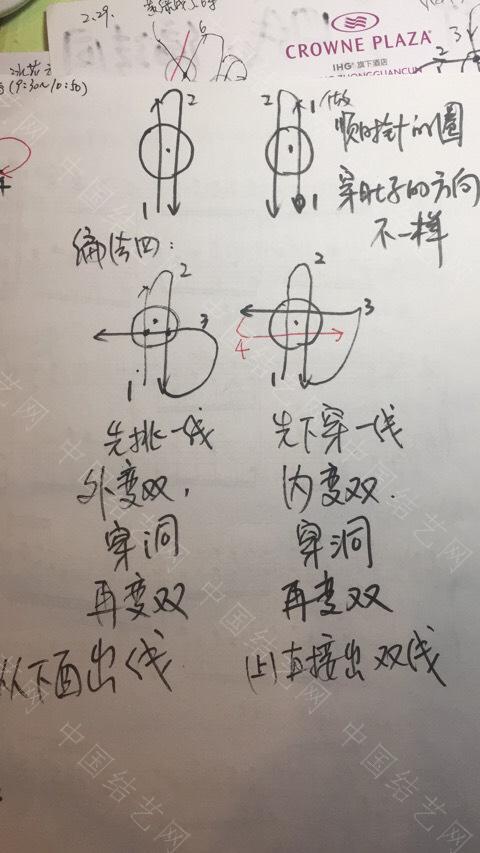 2.29.
CROWNE PLAZA
IHG® 旗下酒店
ZHONGGUANCUN
(9:30~10:50)
2
1
2
1
1
做
顺时针的圈
穿肚子的方向
不一样
编法四:
2
3
1
2
3
4
1
先挑一线
外变双,
穿洞
再变双
从下面出线
先下穿一线
内变双.
穿洞
再变双
(上)直接出双线
中国结艺网